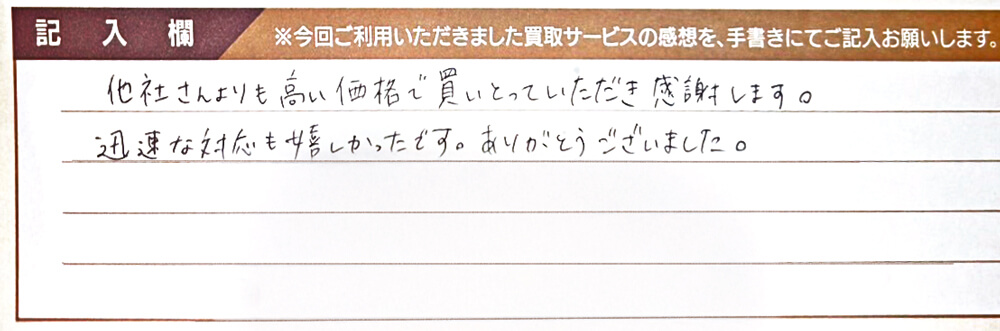 記入欄
※今回ご利用いただきました買取サービスの感想を、手書きにてご記入お願いします。
他社さんよりも高い価格で買いとっていただき感謝します。
迅速な対応も嬉しかったです。ありがとうございました。